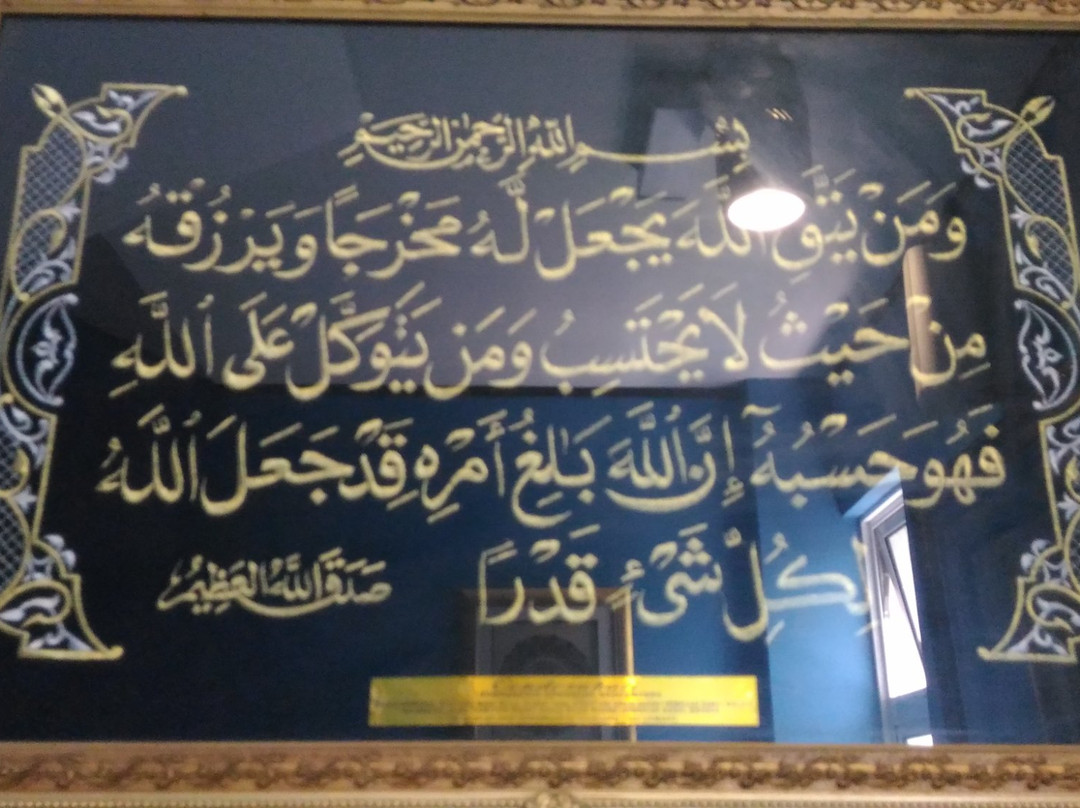 بِسْمِ اللهِ الرَّحْمٰنِ الرَّحِيْمِ
وَمَنْ يَتَّقِ اللَّهَ يَجْعَلْ لَّهُ مَخْرَجًا وَيَرْزُقْهُ
مِنْ حَيْثُ لَا يَحْتَسِبُ وَمَنْ يَتَوَكَّلْ عَلَى ٱللَّهِ
فَهُوَ حَسْبُهُ إِنَّ ٱللَّهَ بَٰلِغُ أَمْرِهِ قَدْ جَعَلَ ٱللَّهُ
لِكُلِّ شَىْءٍ قَدْرًا
صَدَقَ اللَّهُ الْعَظِيْمُ